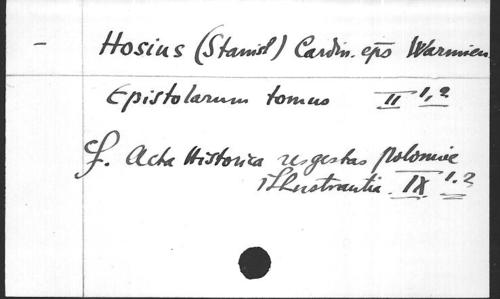 - Hosius (Stanisl) Cardin. eps Warmien.
Epistolarum tomus II 1,2
cf. Acta Historica res gestas Poloniae
illustrantia IX 1.2